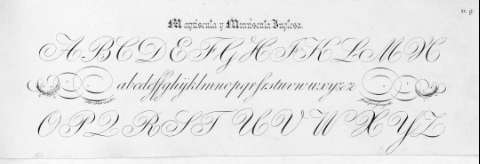 Mayúscula y Minúscula Inglesa.
A B C D E F G H I K L M N
a b c d e f f g h i j k l m n o p q r s t u v w x y z
O P Q R S T U V W X Y Z